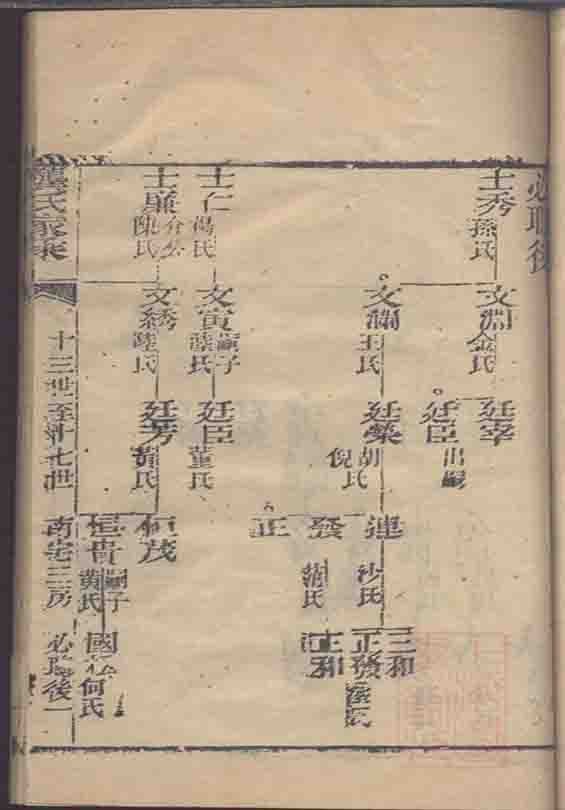 必聰後
士秀 孫氏
文淵 金氏
廷宰
廷臣 出嗣
文瀾 王氏
廷榮 胡氏 倪氏
連 沙氏
三和
正發
發
正和
正
士仁 楊氏
文寅 嗣子 薛氏
廷臣 董氏
士廉 介公 陳氏
文綉 陸氏
廷芳 黃氏
恒茂
恒貴 嗣子 黃氏
國 何氏
氏家乘
十三世至十七世
南宅三房
必聰後一